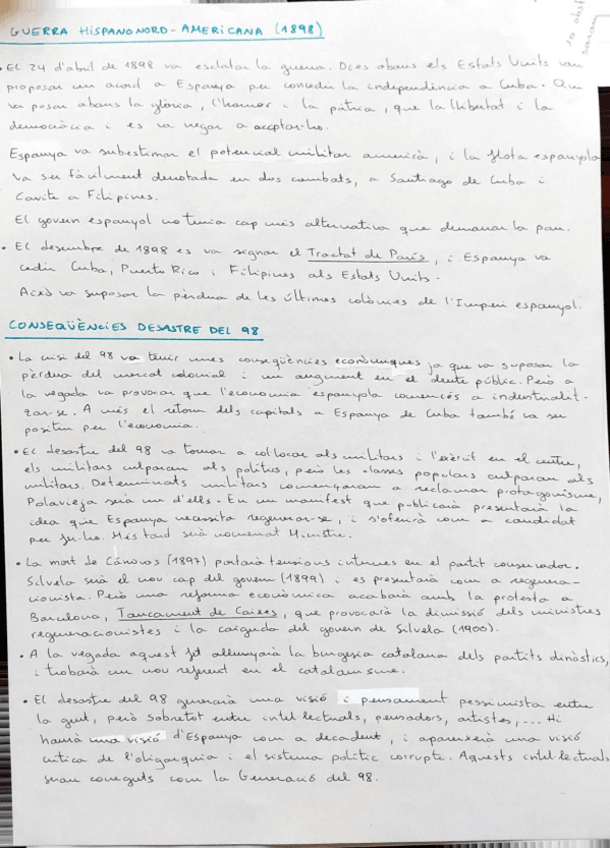 GUERRA HISPANONORD-AMERICANA (1898)
• El 24 d'abril de 1898 va esclatar la guerra. Dies abans els Estats Units van
proposar un acord a Espanya per concedir la independència a Cuba.
va posar abans la glòria, l'honor i la pàtria, que la llibertat i la
democràcia i es va negar a acceptar-ho.
Espanya va subestimar el potencial militar americà, i la flota espanyola
va ser fàcilment derrotada en dos combats, a Santiago de Cuba i
Cavite a Filipines.
El govern espanyol no tenia cap més alternativa que demanar la pau.
• El desembre de 1898 es va signar el Tractat de París, i Espanya va
cedir Cuba, Puerto Rico i Filipines als Estats Units.
Això va suposar la pèrdua de les últimes colònies de l'Imperi espanyol.
CONSEQÜÈNCIES DESASTRE DEL 98
• La crisi del 98 va tenir unes conseqüències econòmiques ja que va suposar la
pèrdua del mercat colonial i un augment en el deute públic. Però a
la vegada va provocar que l'economia espanyola comencés a industrialit-
zar-se. A més el retorn dels capitals a Espanya de Cuba també va ser
positiu per l'economia.
• El desastre del 98 va tornar a col·locar als militars i l'exèrcit en el centre,
els militars culparan als polítics, però les classes populars culparan als
militars. Determinats militars començaran a reclamar protagonisme,
Polavieja serà un d'ells. En un manifest que publicarà presentarà la
idea que Espanya necessita regenerar-se, i s'oferirà com a candidat
per fer-ho. Més tard serà nomenat Ministre.
• La mort de Cánovas (1897) portarà tensions internes en el partit conservador.
Silvela serà el nou cap del govern (1899) i es presentarà com a regenera-
cionista. Però una reforma econòmica acabarà amb la protesta a
Barcelona, Tancament de Caixes, que provocarà la dimissió dels ministres
regeneracionistes i la caiguda del govern de Silvela (1900).
• A la vegada aquest fet allunyarà la burgesia catalana dels partits dinàstics,
i trobarà un nou referent en el catalanisme.
• El desastre del 98 generarà una visió i pensament pessimista entre
la gent, però sobretot entre intel·lectuals, pensadors, artistes,... Hi
haurà una visió d'Espanya com a decadent, i apareixerà una visió
crítica de l'oligarquia i el sistema polític corrupte. Aquests intel·lectuals
seran coneguts com la Generació del 98.